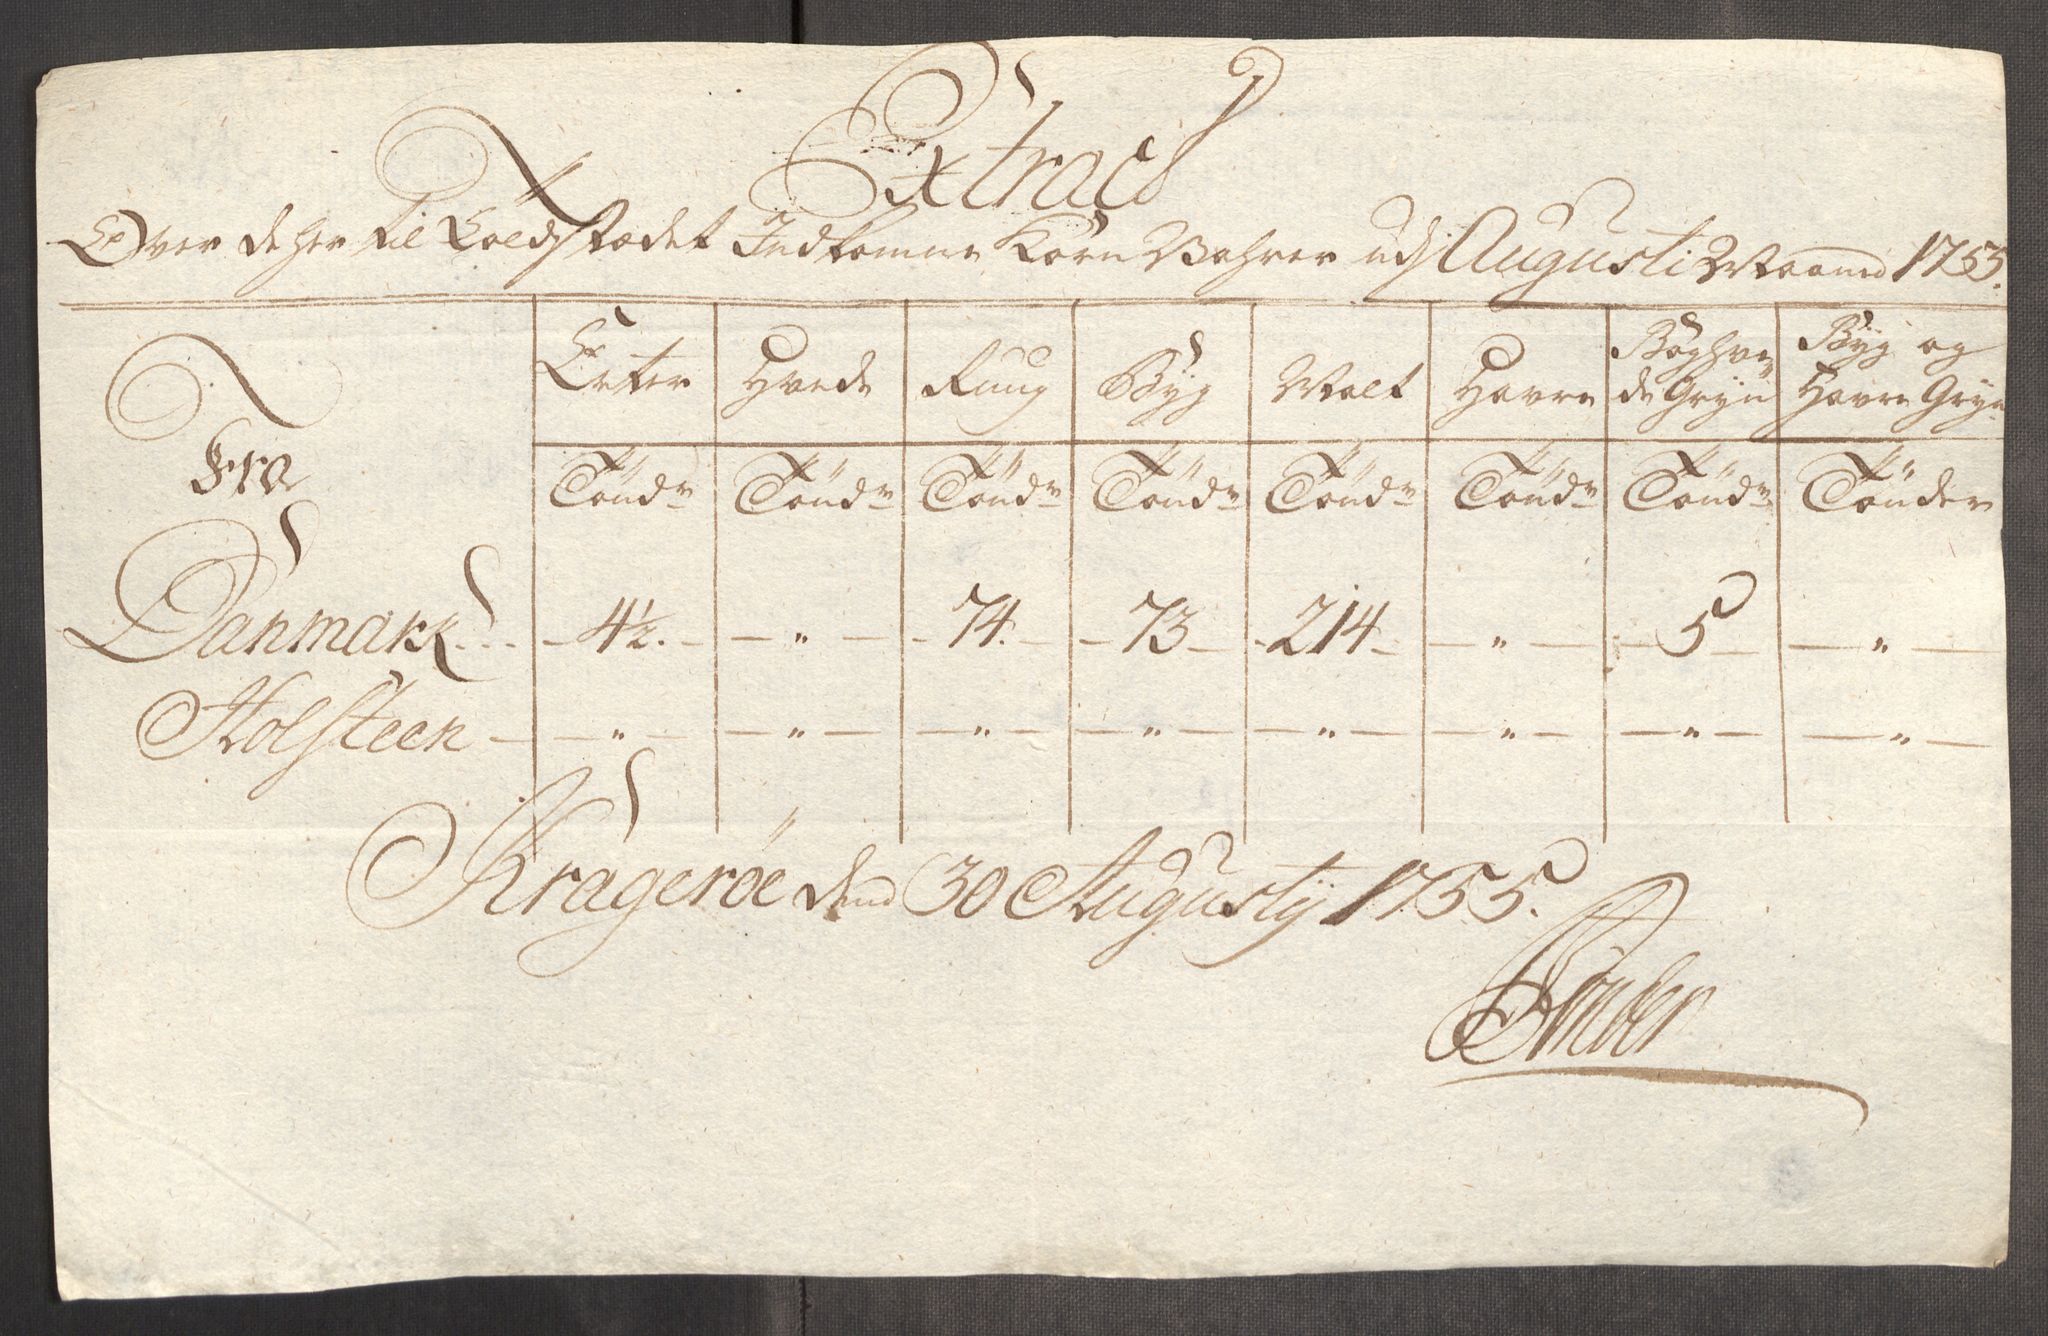 Extract
Over de her til Toldstædet Indkomne Korn Wahrer udj Augusti Maaned 1755.
Fra
Erter Hvede Ruug Byg Malt Havre Boghve=de Gryn Byg og Havre Gryn
Tønd Tønd Tønd Tønd Tønd Tønd Tønd Tønder
Danmark - 4½. - " - 74. - 73 - 214 - " - 5 - " -
Holsteen - " - " - " - " - " - " - " - " -
Kragerøe dend 30 Augustij 1755.